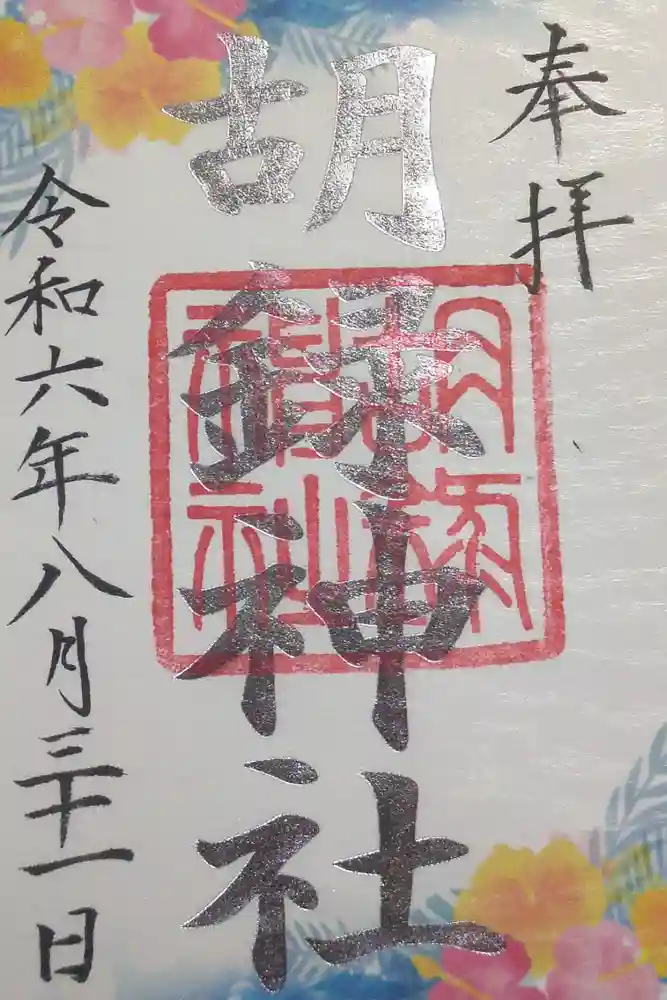 奉拝
胡録神社
令和六年八月三十一日